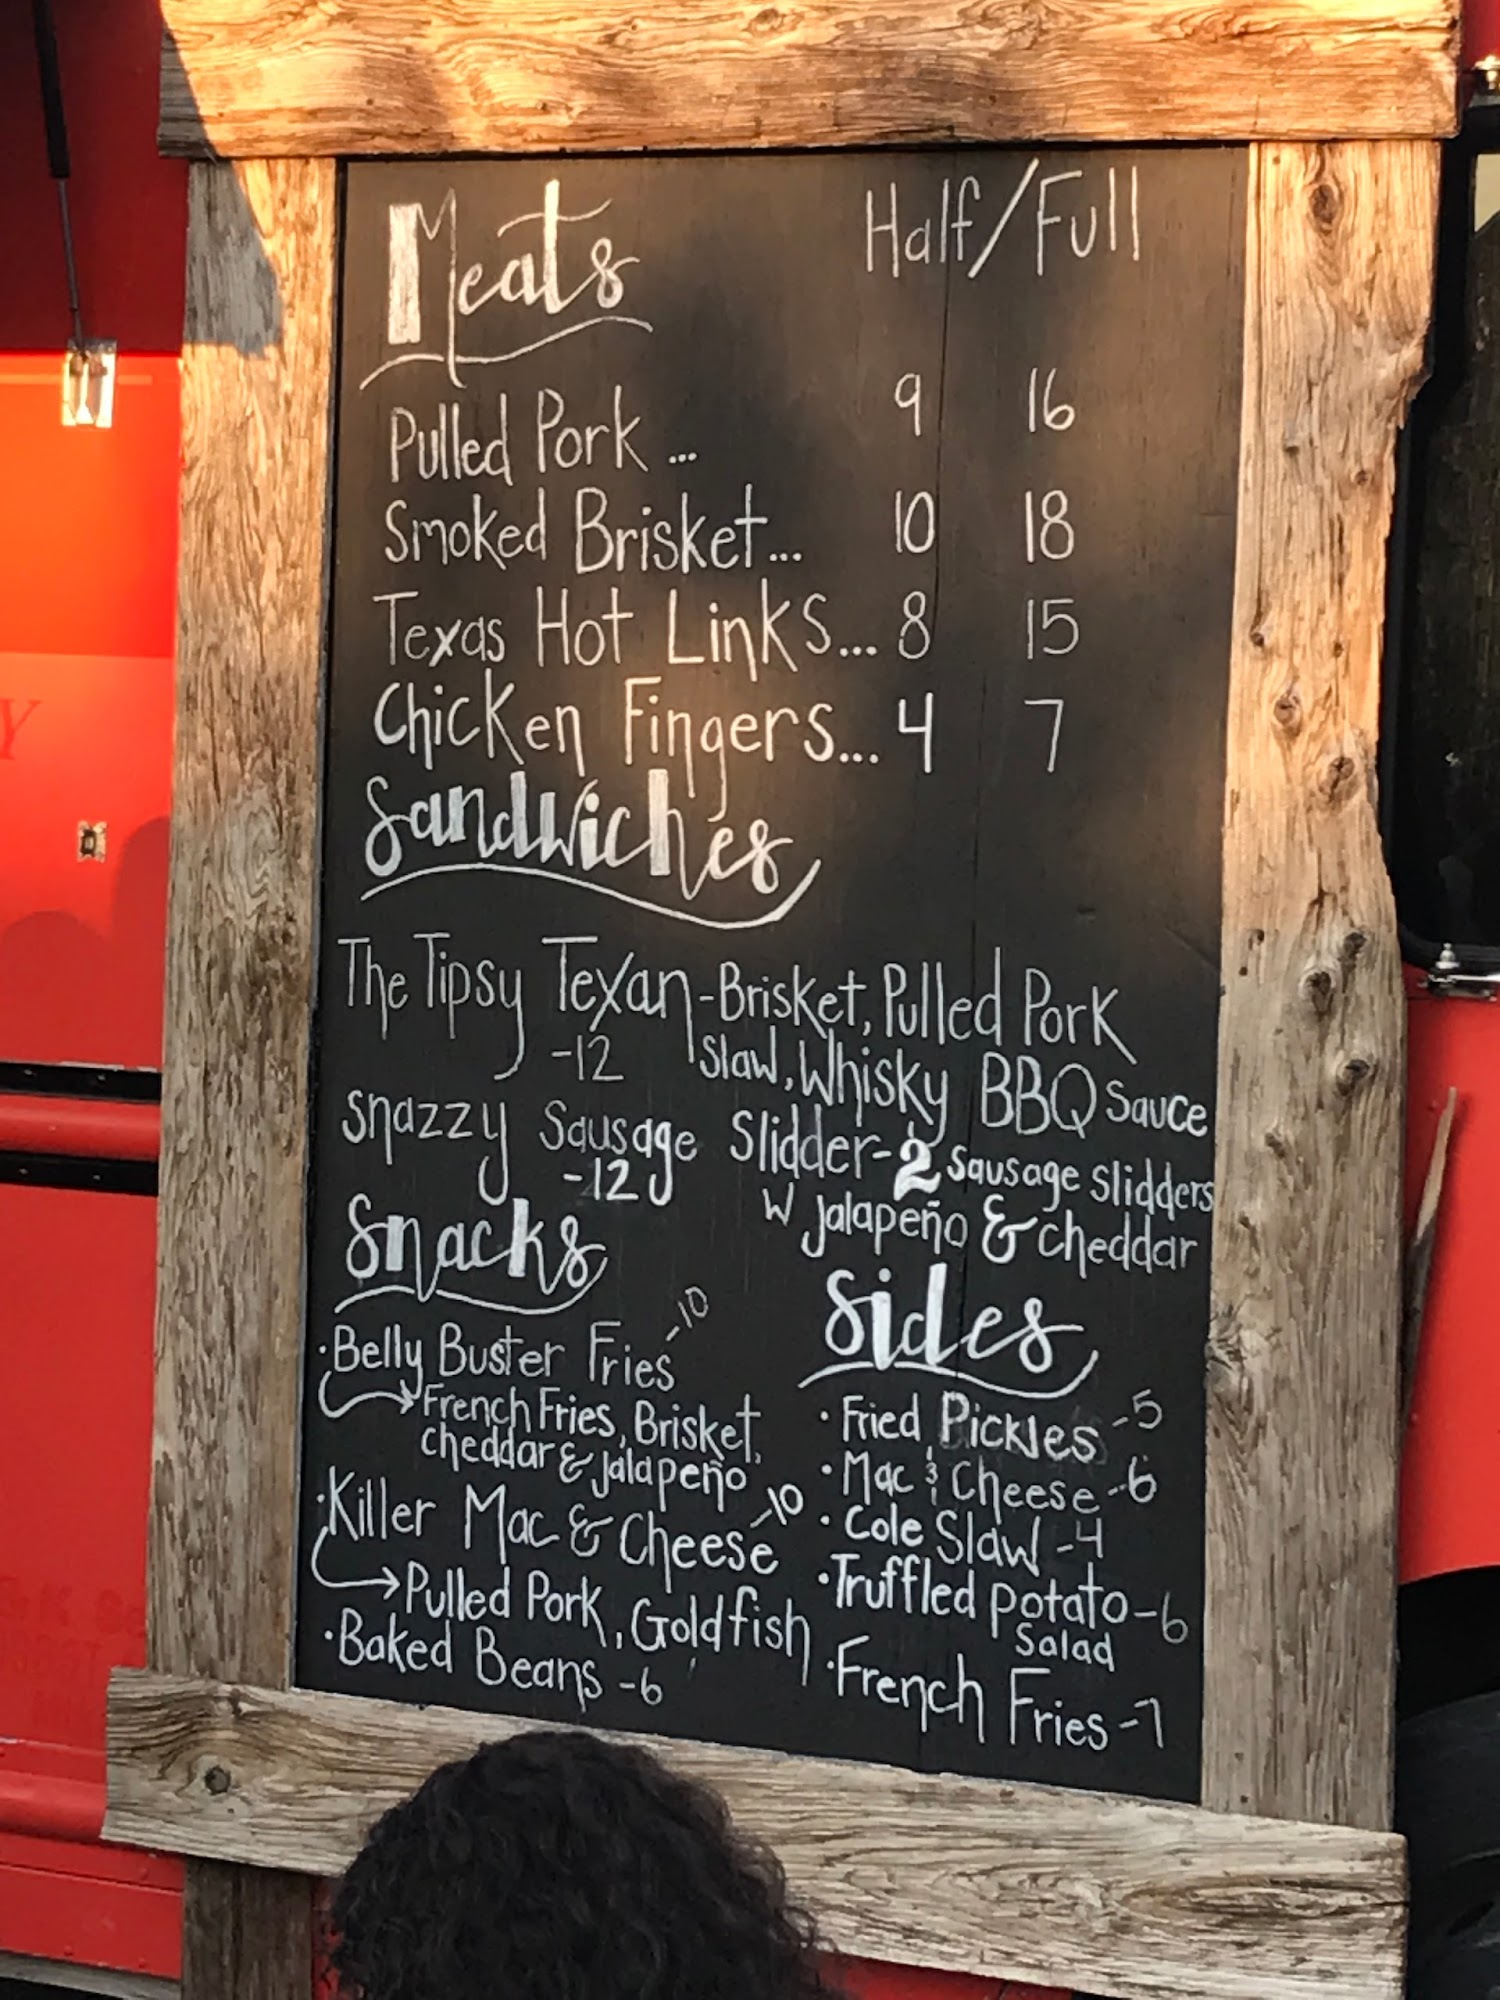 Meats Half/Full
Pulled Pork... 9 16
Smoked Brisket... 10 18
Texas Hot Links... 8 15
Chicken Fingers... 4 7
Sandwiches
The Tipsy Texan - Brisket, Pulled Pork
-12 Slaw, Whisky BBQ Sauce
Snazzy Sausage Slidder - 2 Sausage Slidders
-12 W Jalapeño & Cheddar
Snacks
·Belly Buster Fries -10
French Fries, Brisket,
Cheddar & Jalapeño
·Killer Mac & Cheese -10
Pulled Pork, Goldfish
·Baked Beans -6
Sides
·Fried Pickles -5
·Mac & Cheese -6
·Cole Slaw -4
·Truffled Potato -6
Salad
·French Fries -7
Y